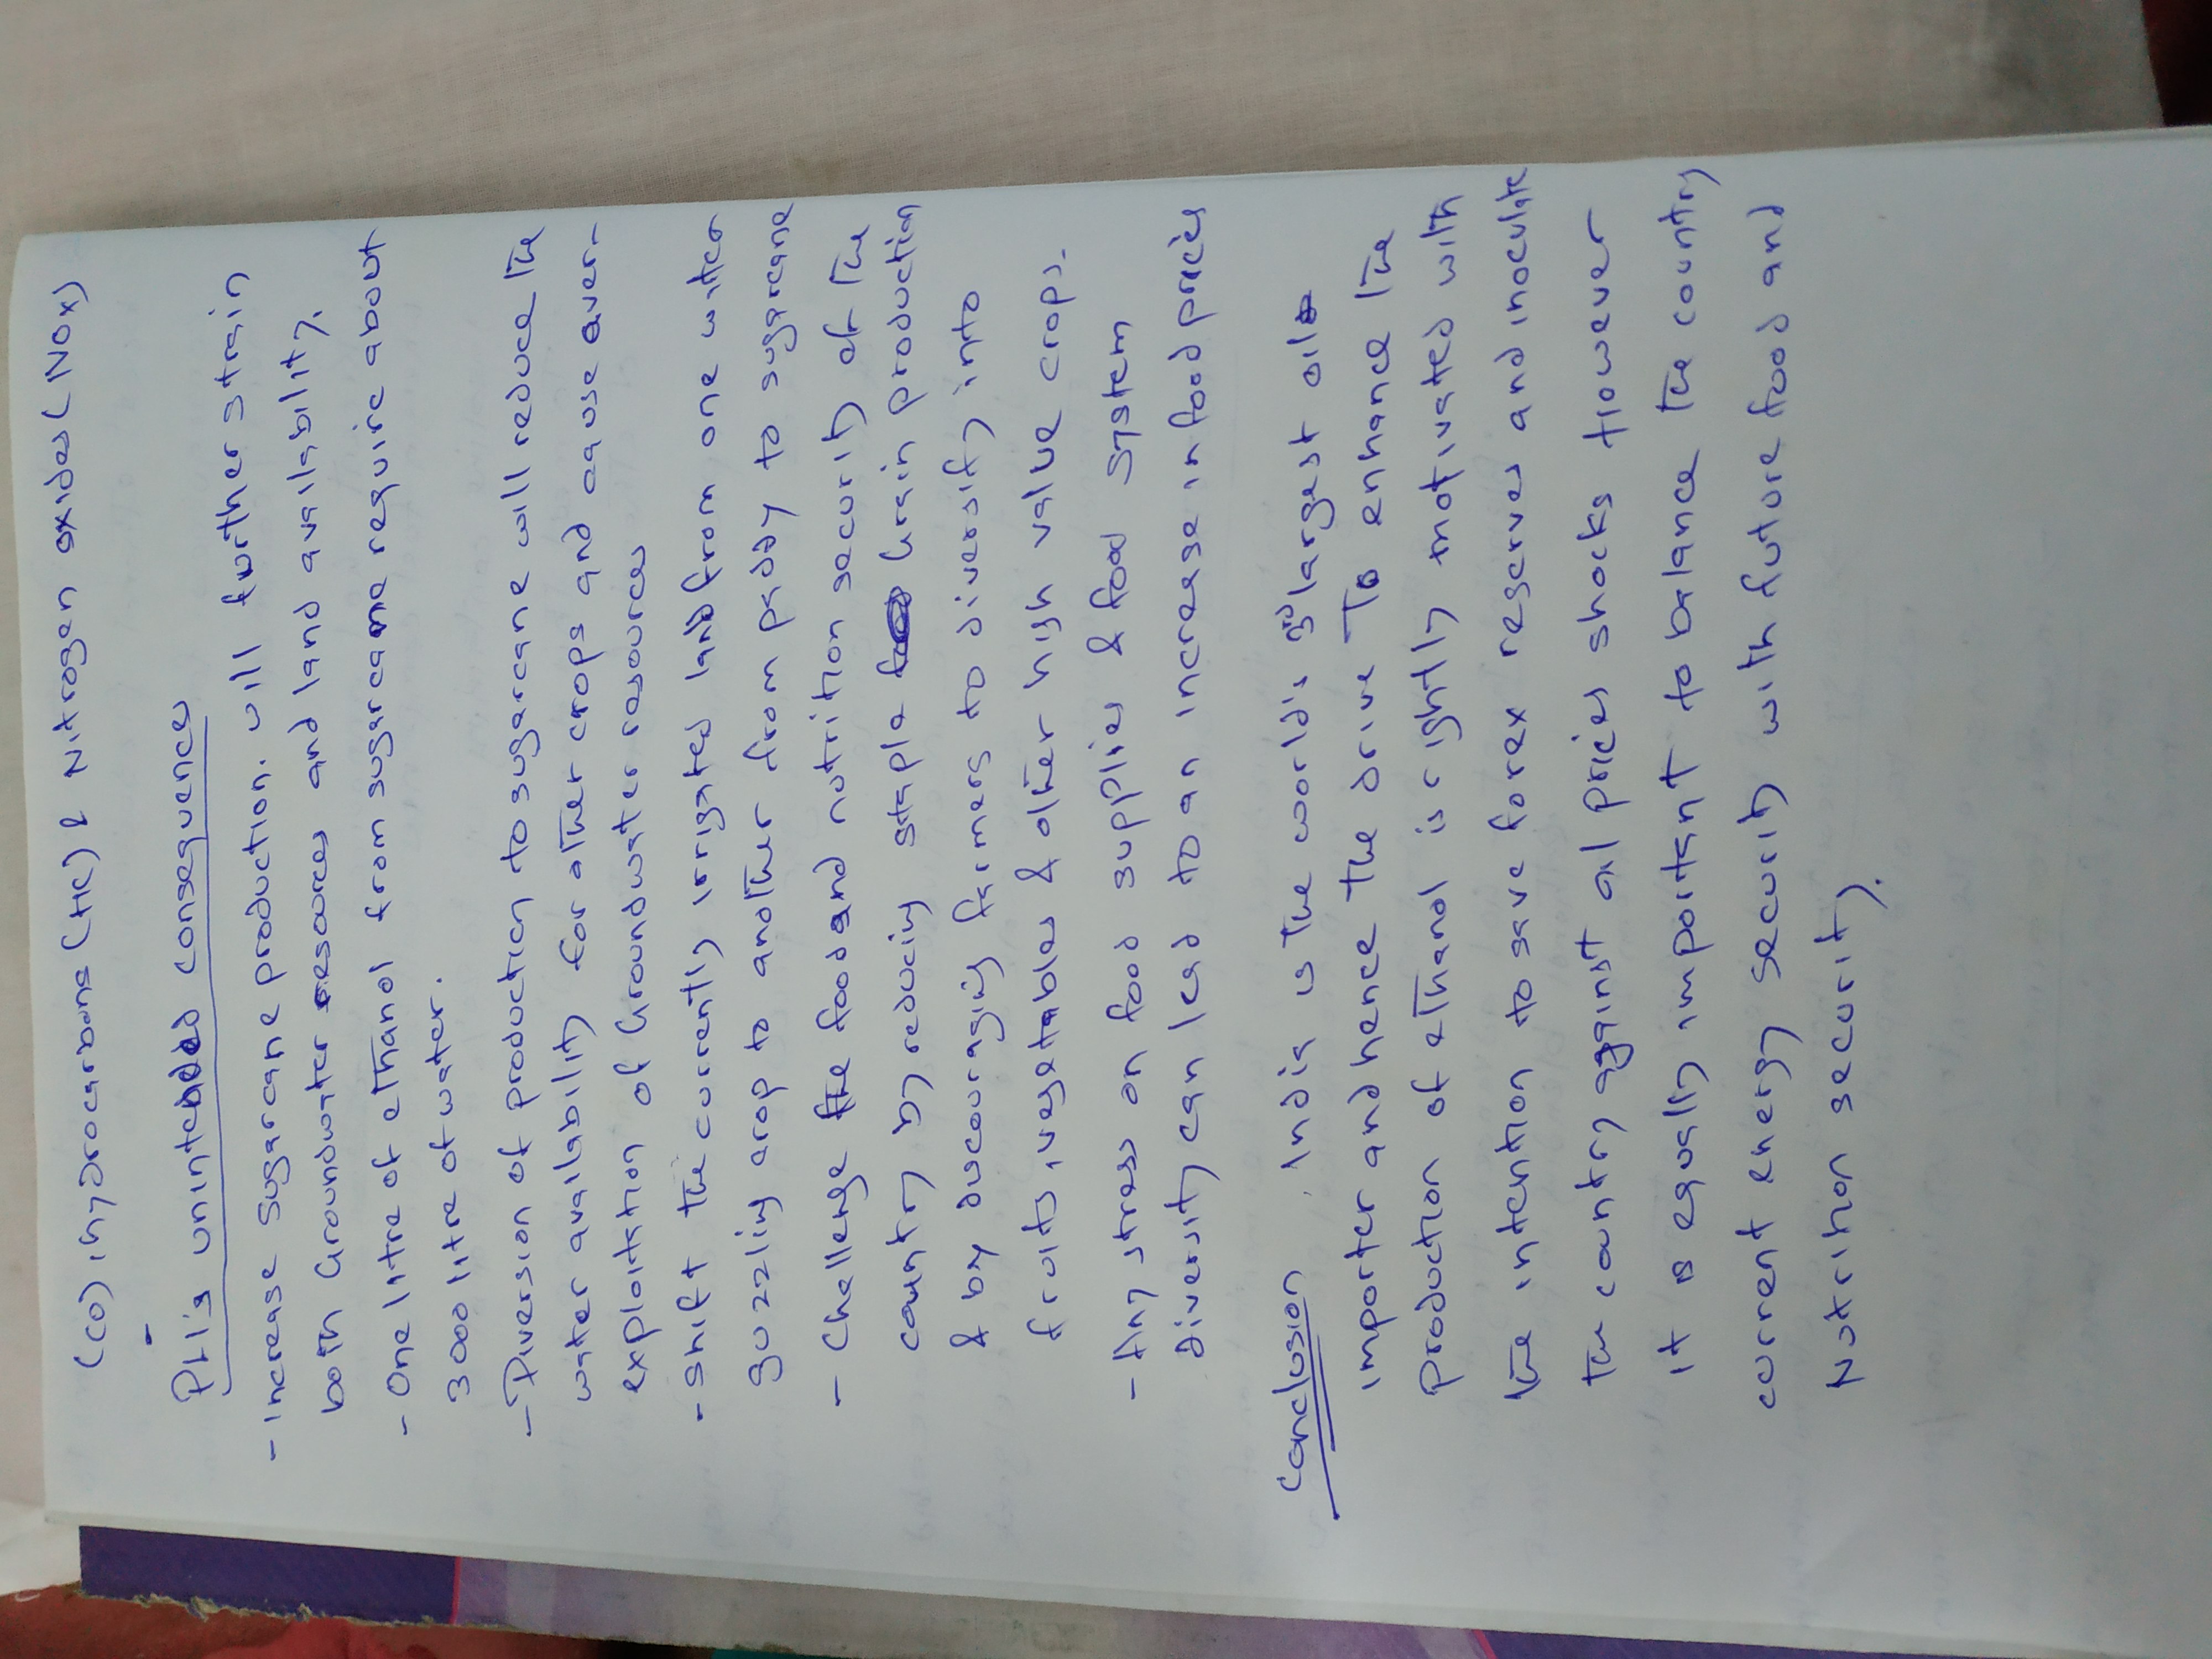 (CO), hydrocarbons (HC) & Nitrogen oxides (NOx)
PLI's unintended consequences
- increase sugarcane production. will further strain
both Groundwater resources and land availability.
- One litre of ethanol from sugarcane require about
3000 litre of water.
- Diversion of production to sugarcane will reduce the
water availability for other crops and cause over-
exploitation of Groundwater resources
- shift the currently irrigated land from one water
guzzling crop to another from paddy to sugarcane
- Challenge the food and nutrition security of the
country by reducing staple Grain production
& by discouraging farmers to diversify into
fruits, vegetables & other high value crops.
- Any stress on food supplies & food system
diversity can lead to an increase in food prices
Conclusion India is the world's 3rd largest oil
importer and hence the drive to enhance the
production of ethanol is rightly motivated with
the intention to save forex reserves and inoculate
the country against oil prices shocks However
it is equally important to balance the country
current energy security with future food and
Nutrition security.